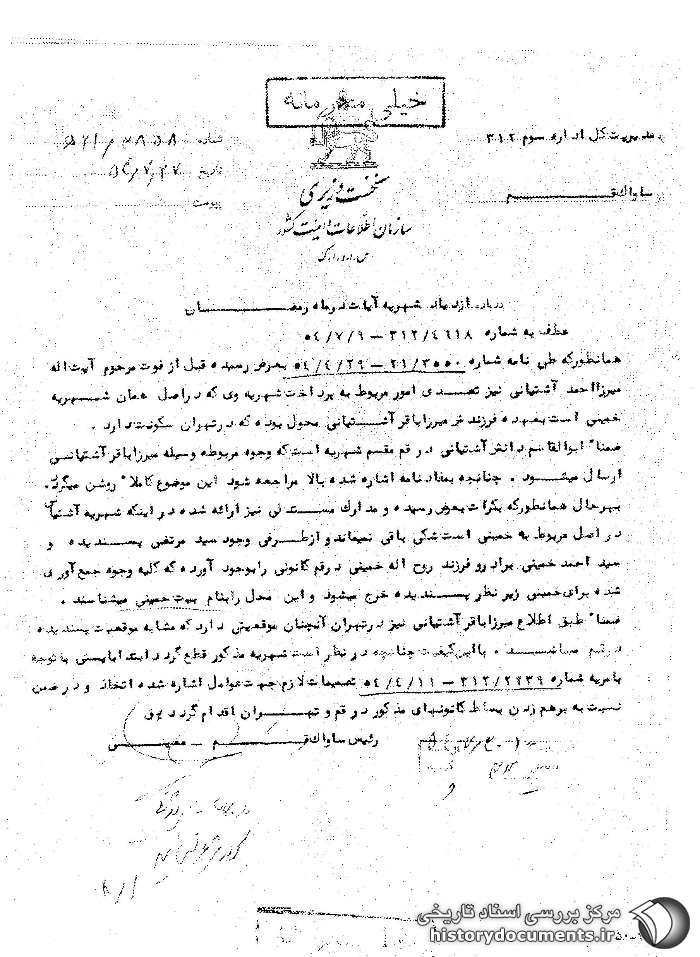 خیلی محرمانه
مدیریت کل اداره سوم ۳۱۲
شماره
تاریخ ۵۴/۷/۲۷
پیوست
ساواک قم
نخست وزیری
سازمان اطلاعات و امنیت کشور
س.ا.و.ا.ک
درباره ازدیاد شهریه آیات در ماه رمضان
عطف به شماره ۳۱۲/۴۶۱۸ – ۵۴/۷/۹
همانطورکه طی نامه شماره ۲۱/۳۵۵۰ – ۵۴/۴/۲۹ بعرض رسیده قبل از فوت مرحوم آیت اله
میرزااحمد آشتیانی نیز تصدی امور مربوط به پرداخت شهریه وی که دراصل همان شهریه
خمینی است بعهده فرزندش میرزاباقر آشتیانی محول بوده که درتهران سکونت دارد .
ضمناً ابوالقاسم دانش آشتیانی در قم مقسم شهریه است که وجوه مربوطه وسیله میرزاباقر آشتیانی
ارسال میشود . چنانچه بمفاد نامه اشاره شده بالا مراجعه شود این موضوع کاملاً روشن میگردد.
بهرحال همانطورکه بکرات بعرض رسیده و مدارک مستدلی نیز ارائه شده در اینکه شهریه آشتیانی
در اصل مربوط به خمینی است شکی باقی نمیماند و از طرفی وجود سید مرتضی پسندیده و
سید احمد خمینی برادر و فرزند روح اله خمینی در قم کانونی را بوجود آورده که کلیه وجوه جمع آوری
شده برای خمینی زیر نظر پسندیده خرج میشود و این محل را بنام بیت خمینی میشناسند .
ضمناً طبق اطلاع میرزاباقر آشتیانی نیز درتهران آنچنان موقعیتی دارد که مشابه موقعیت پسندیده
درقم میباشد . بااین کیفیت چنانچه در نظر است شهریه مذکور قطع گردد ابتدا بایستی با توجه
بامریه شماره ۳۱۲/۲۹۳۹ – ۵۴/۴/۱۱ تصمیمات لازم جهت عوامل اشاره شده اتخاذ و در ضمن
نسبت به برهم زدن بساط کانونهای مذکور در قم و تهران اقدام گردد
رئیس ساواک قم – معینی
مرکز بررسی اسناد تاریخی
historydocuments.ir